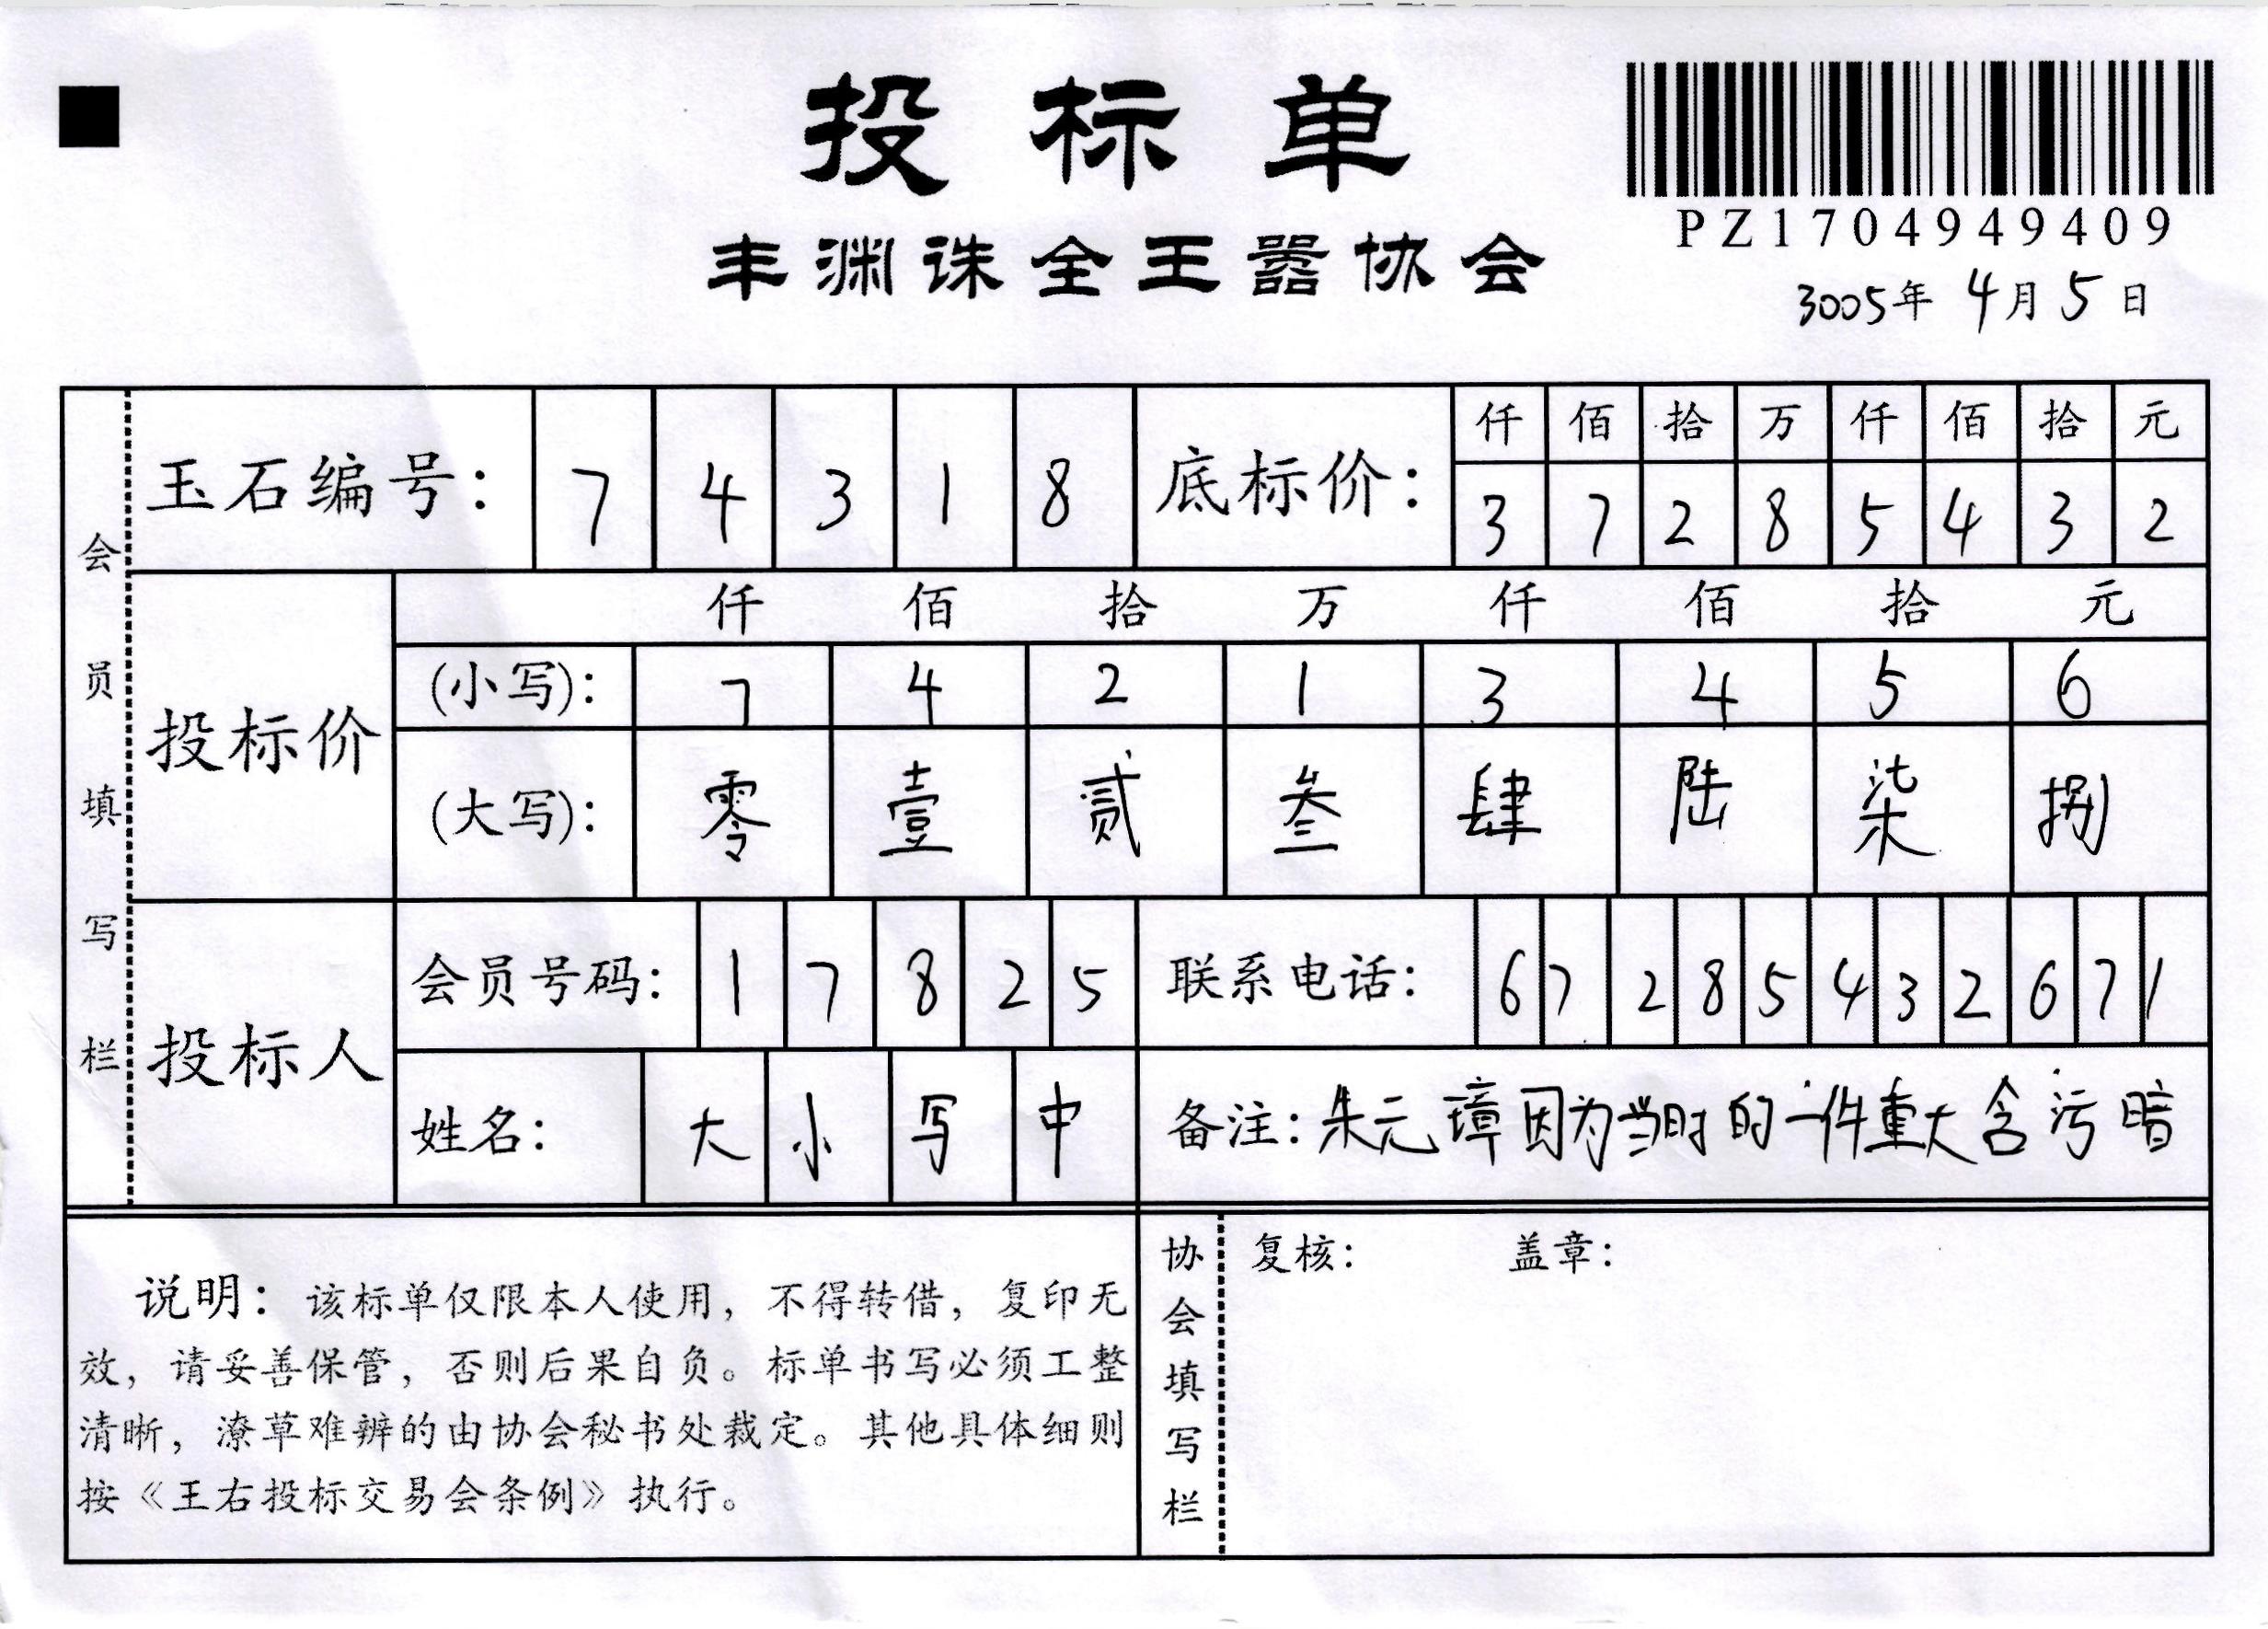 投标单
PZ1704949409
丰渊诛全王嚣协会
3005年 4月 5日
会员填写栏
玉石编号： 7 4 3 1 8
底标价： 仟 佰 拾 万 仟 佰 拾 元
3 7 2 8 5 4 3 2
投标价
仟 佰 拾 万 仟 佰 拾 元
(小写)： 7 4 2 1 3 4 5 6
(大写)： 零 壹 贰 叁 肆 陆 柒 捌
投标人
会员号码： 1 7 8 2 5
联系电话： 6 7 2 8 5 4 3 2 6 7 1
姓名： 大 小 写 中
备注：朱元璋因为当时的一件重大含污暗
说明：该标单仅限本人使用，不得转借，复印无
效，请妥善保管，否则后果自负。标单书写必须工整
清晰，潦草难辨的由协会秘书处裁定。其他具体细则
按《王右投标交易会条例》执行。
协会填写栏
复核： 盖章：